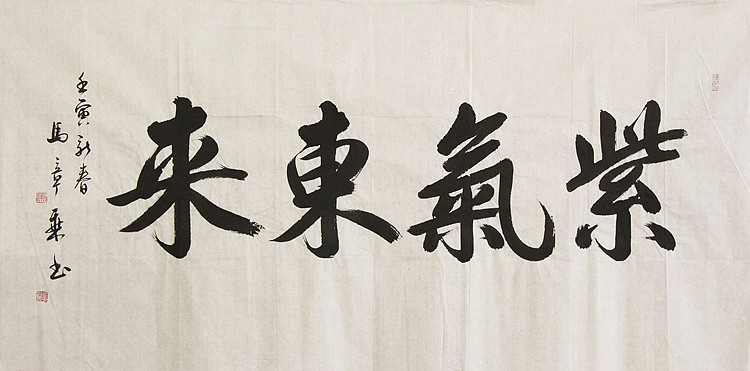 紫氣東来
壬寅新春
馬章乘书